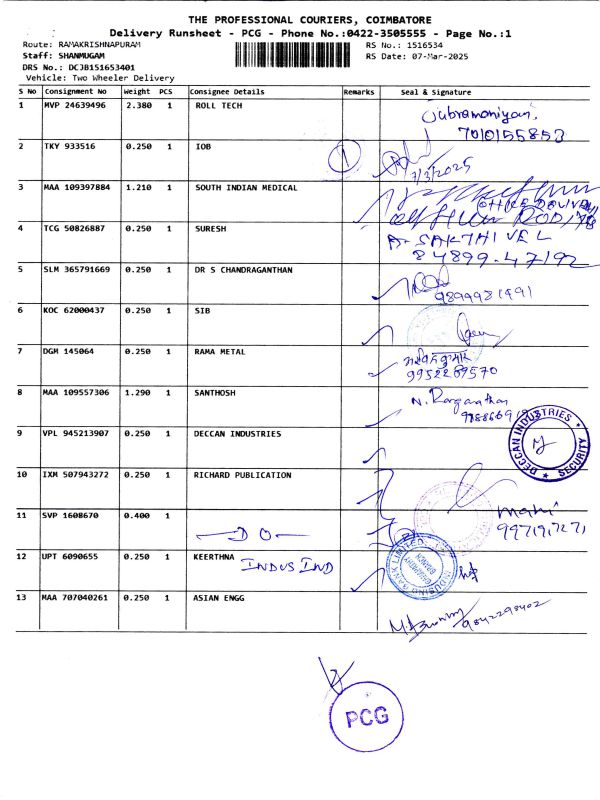 THE PROFESSIONAL COURIERS, COIMBATORE
Delivery Runsheet - PCG - Phone No.:0422-3505555 - Page No.:1
Route: RAMAKRISHNAPURAM RS No.: 1516534
Staff: SHANMUGAM RS Date: 07-Mar-2025
DRS No.: DCJB151653401
Vehicle: Two Wheeler Delivery
S No Consignment No Weight PCS Consignee Details Remarks Seal & Signature
1 MVP 24639496 2.380 1 ROLL TECH
7010155853
2 TKY 933516 0.250 1 IOB 1
7/3/2025
3 MAA 109397884 1.210 1 SOUTH INDIAN MEDICAL
4 TCG 50826887 0.250 1 SURESH A. SAKTHIVEL
84899-47192
5 SLM 365791669 0.250 1 DR S CHANDRAGANTHAN
6 KOC 62000437 0.250 1 SIB
7 DGM 145064 0.250 1 RAMA METAL
9952269570
8 MAA 109557306 1.290 1 SANTHOSH N. Ranganathan
9 VPL 945213907 0.250 1 DECCAN INDUSTRIES
DECCAN INDUSTRIES * SECURITY *
10 IXM 507943272 0.250 1 RICHARD PUBLICATION
11 SVP 1608670 0.400 1 — D O — Mani
12 UPT 6090655 0.250 1 KEERTHNA INDUS IND
INDUSIND BANK LIMITED
13 MAA 707040261 0.250 1 ASIAN ENGG
9842298402
PCG